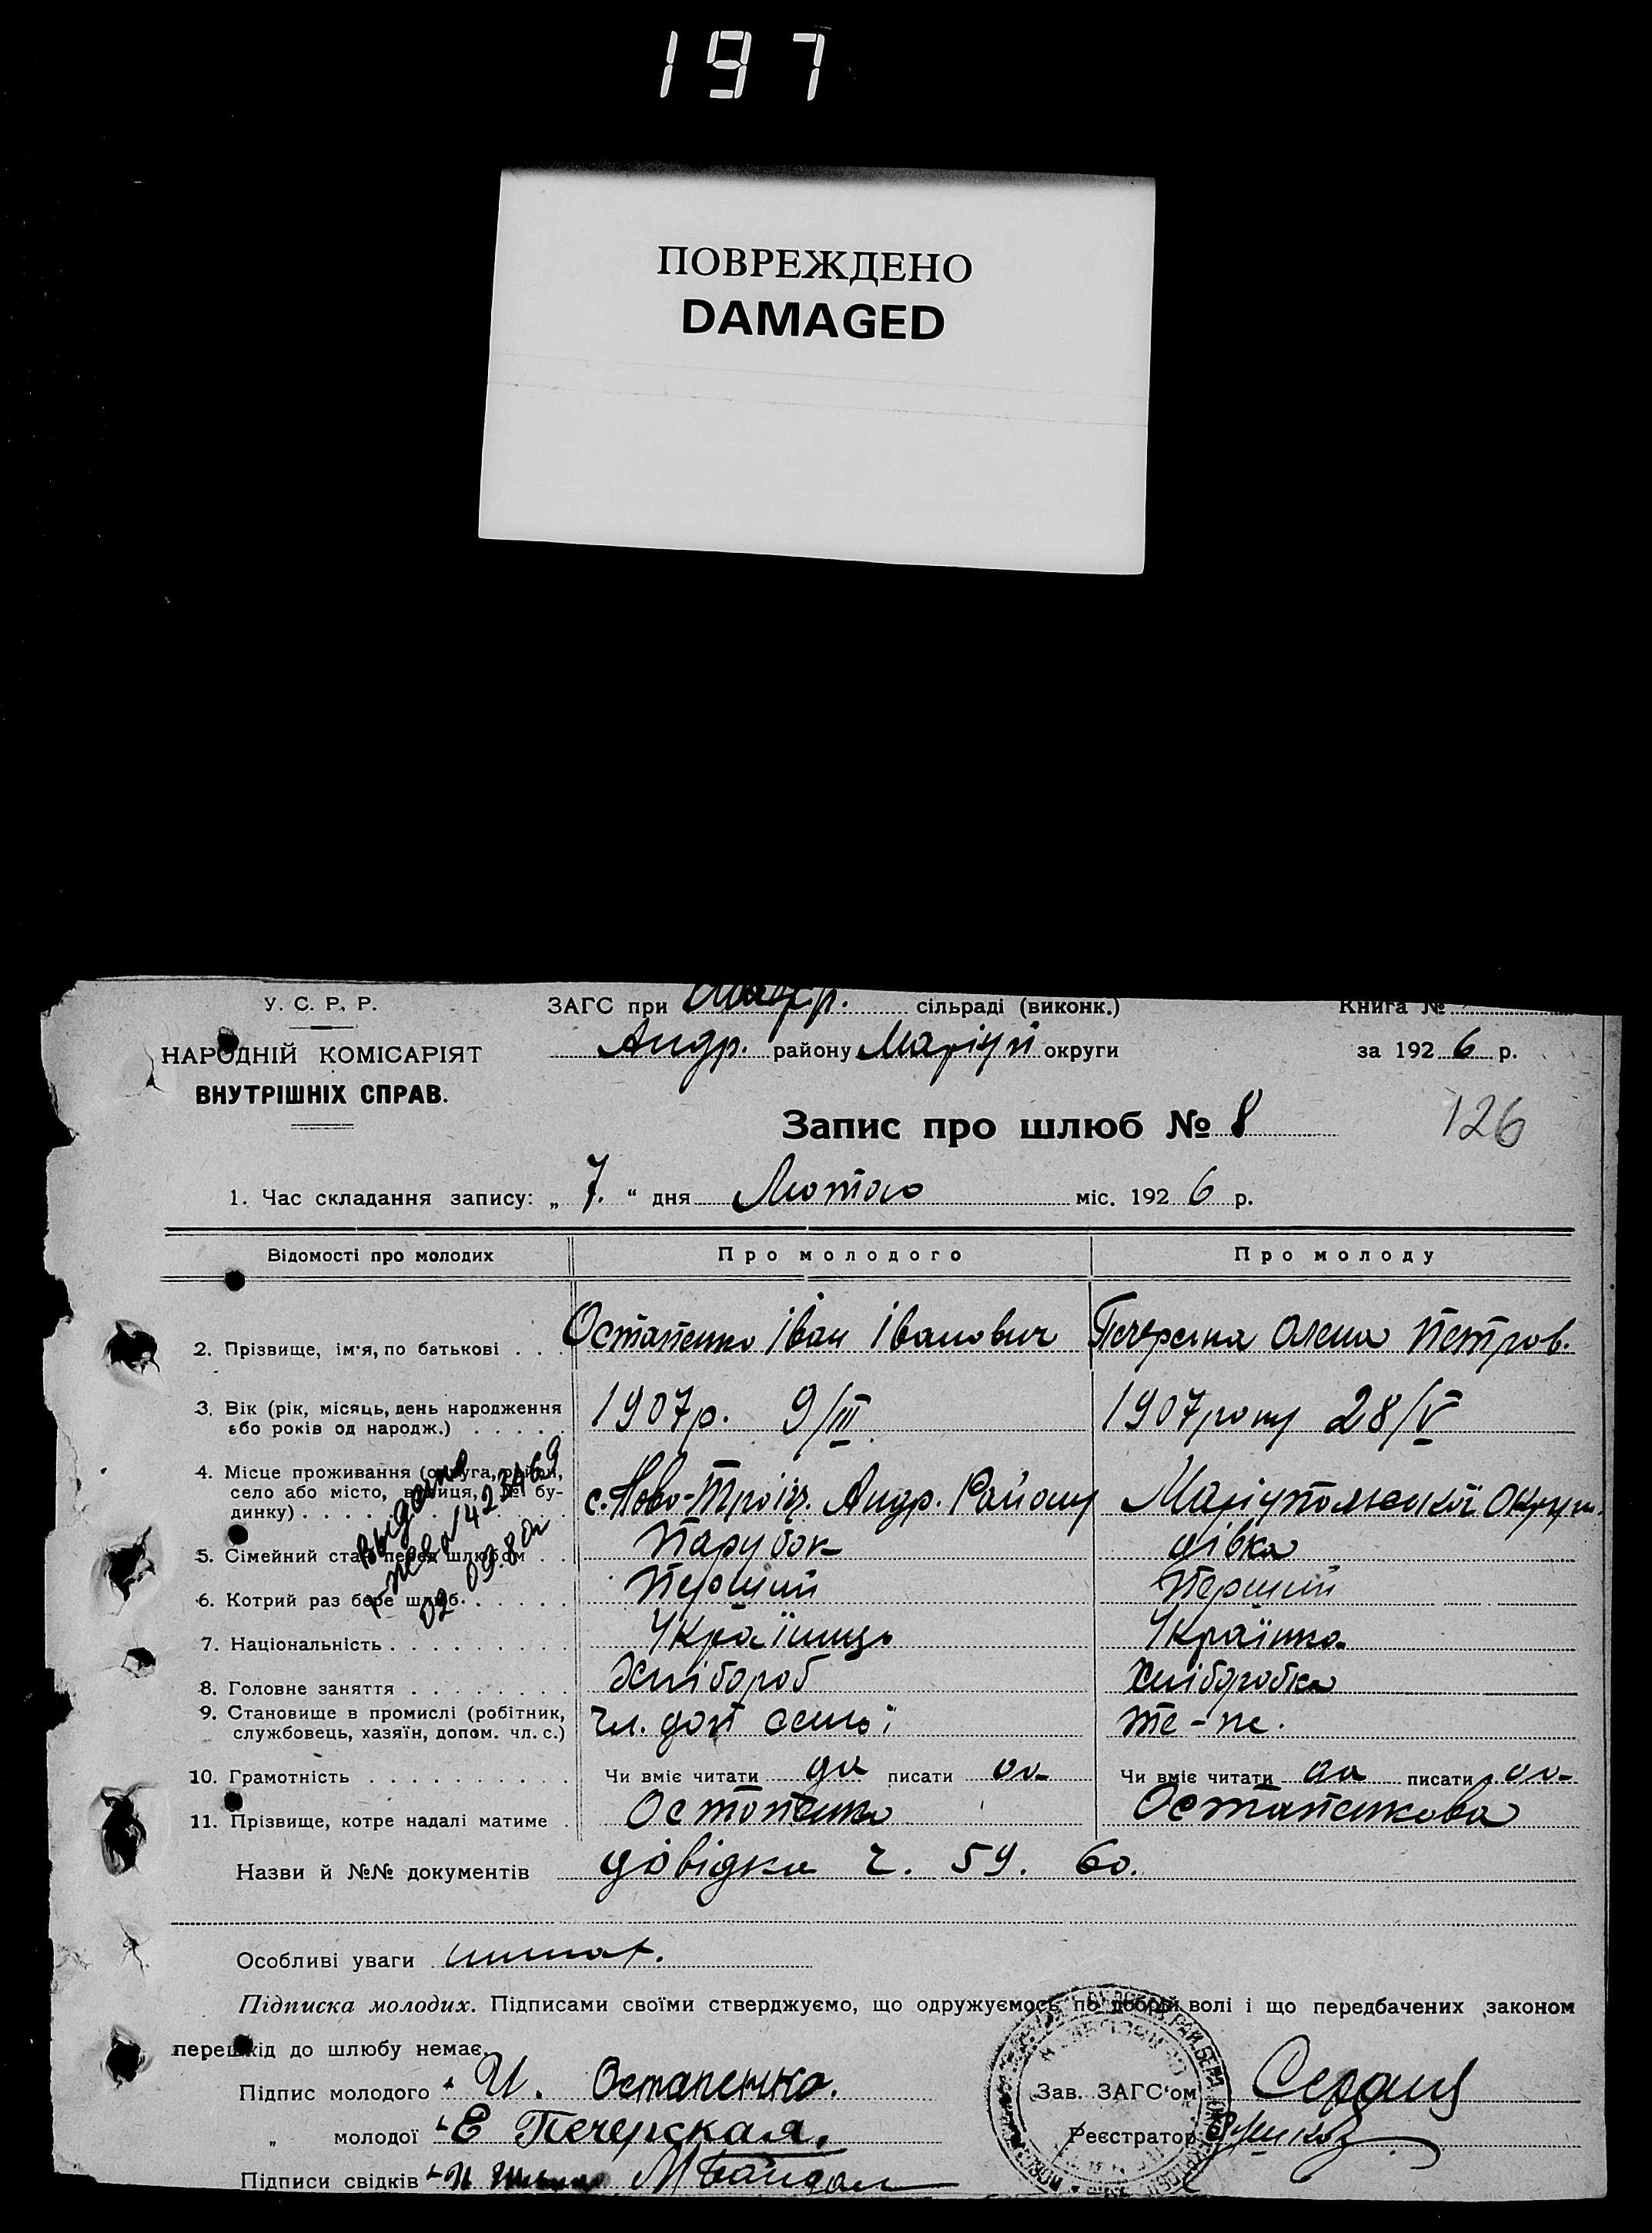 197
ПОВРЕЖДЕНО
DAMAGED
У. С. Р. Р.
ЗАГС при Андр. сільраді (виконк.)
Книга №
НАРОДНІЙ КОМІСАРІЯТ
Андр. району Маріуп округи
за 1926 р.
ВНУТРІШНІХ СПРАВ.
Запис про шлюб № 8
126
1. Час складання запису: „ 7. “ дня Лютого міс. 1926 р.
Відомості про молодих
Про молодого
Про молоду
2. Прізвище, ім'я, по батькові . . . Остапенко Іван Іванович
Печерська Олена Петров.
3. Вік (рік, місяць, день народження або років од народж.) . . . . . 1907р. 9/III
1907 року 28/V
4. Місце проживання (округа, район, село або місто, вулиця, № будинку) . . . . с. Ново-Троіц. Андр. Району
Маріупольскої Округи
5. Сімейний стан перед шлюбом . . Парубок
дівка
6. Котрий раз бере шлюб . . . . . Перший
Перший
7. Національність . . . . . . . . . Українець
Українка
8. Головне заняття . . . . . . . . Хлібороб
Хлiборобка
9. Становище в промислі (робітник, службовець, хазяїн, допом. чл. с.) чл. доп семьї
те-же.
10. Грамотність . . . . . . . . . . Чи вміє читати да писати да
Чи вміє читати да писати да
11. Прізвище, котре надалі матиме . Остапенко
Остапенкова
Назви й №№ документів довідка ч. 59. 60.
Особливі уваги
Підписка молодих. Підписами своїми стверджуємо, що одружуємось по добрій волі і що передбачених законом
перешкід до шлюбу немає.
Підпис молодого И. Остапенко.
Зав. ЗАГС'ом
„ молодої Е Печерская.
Реєстратор
Підписи свідків